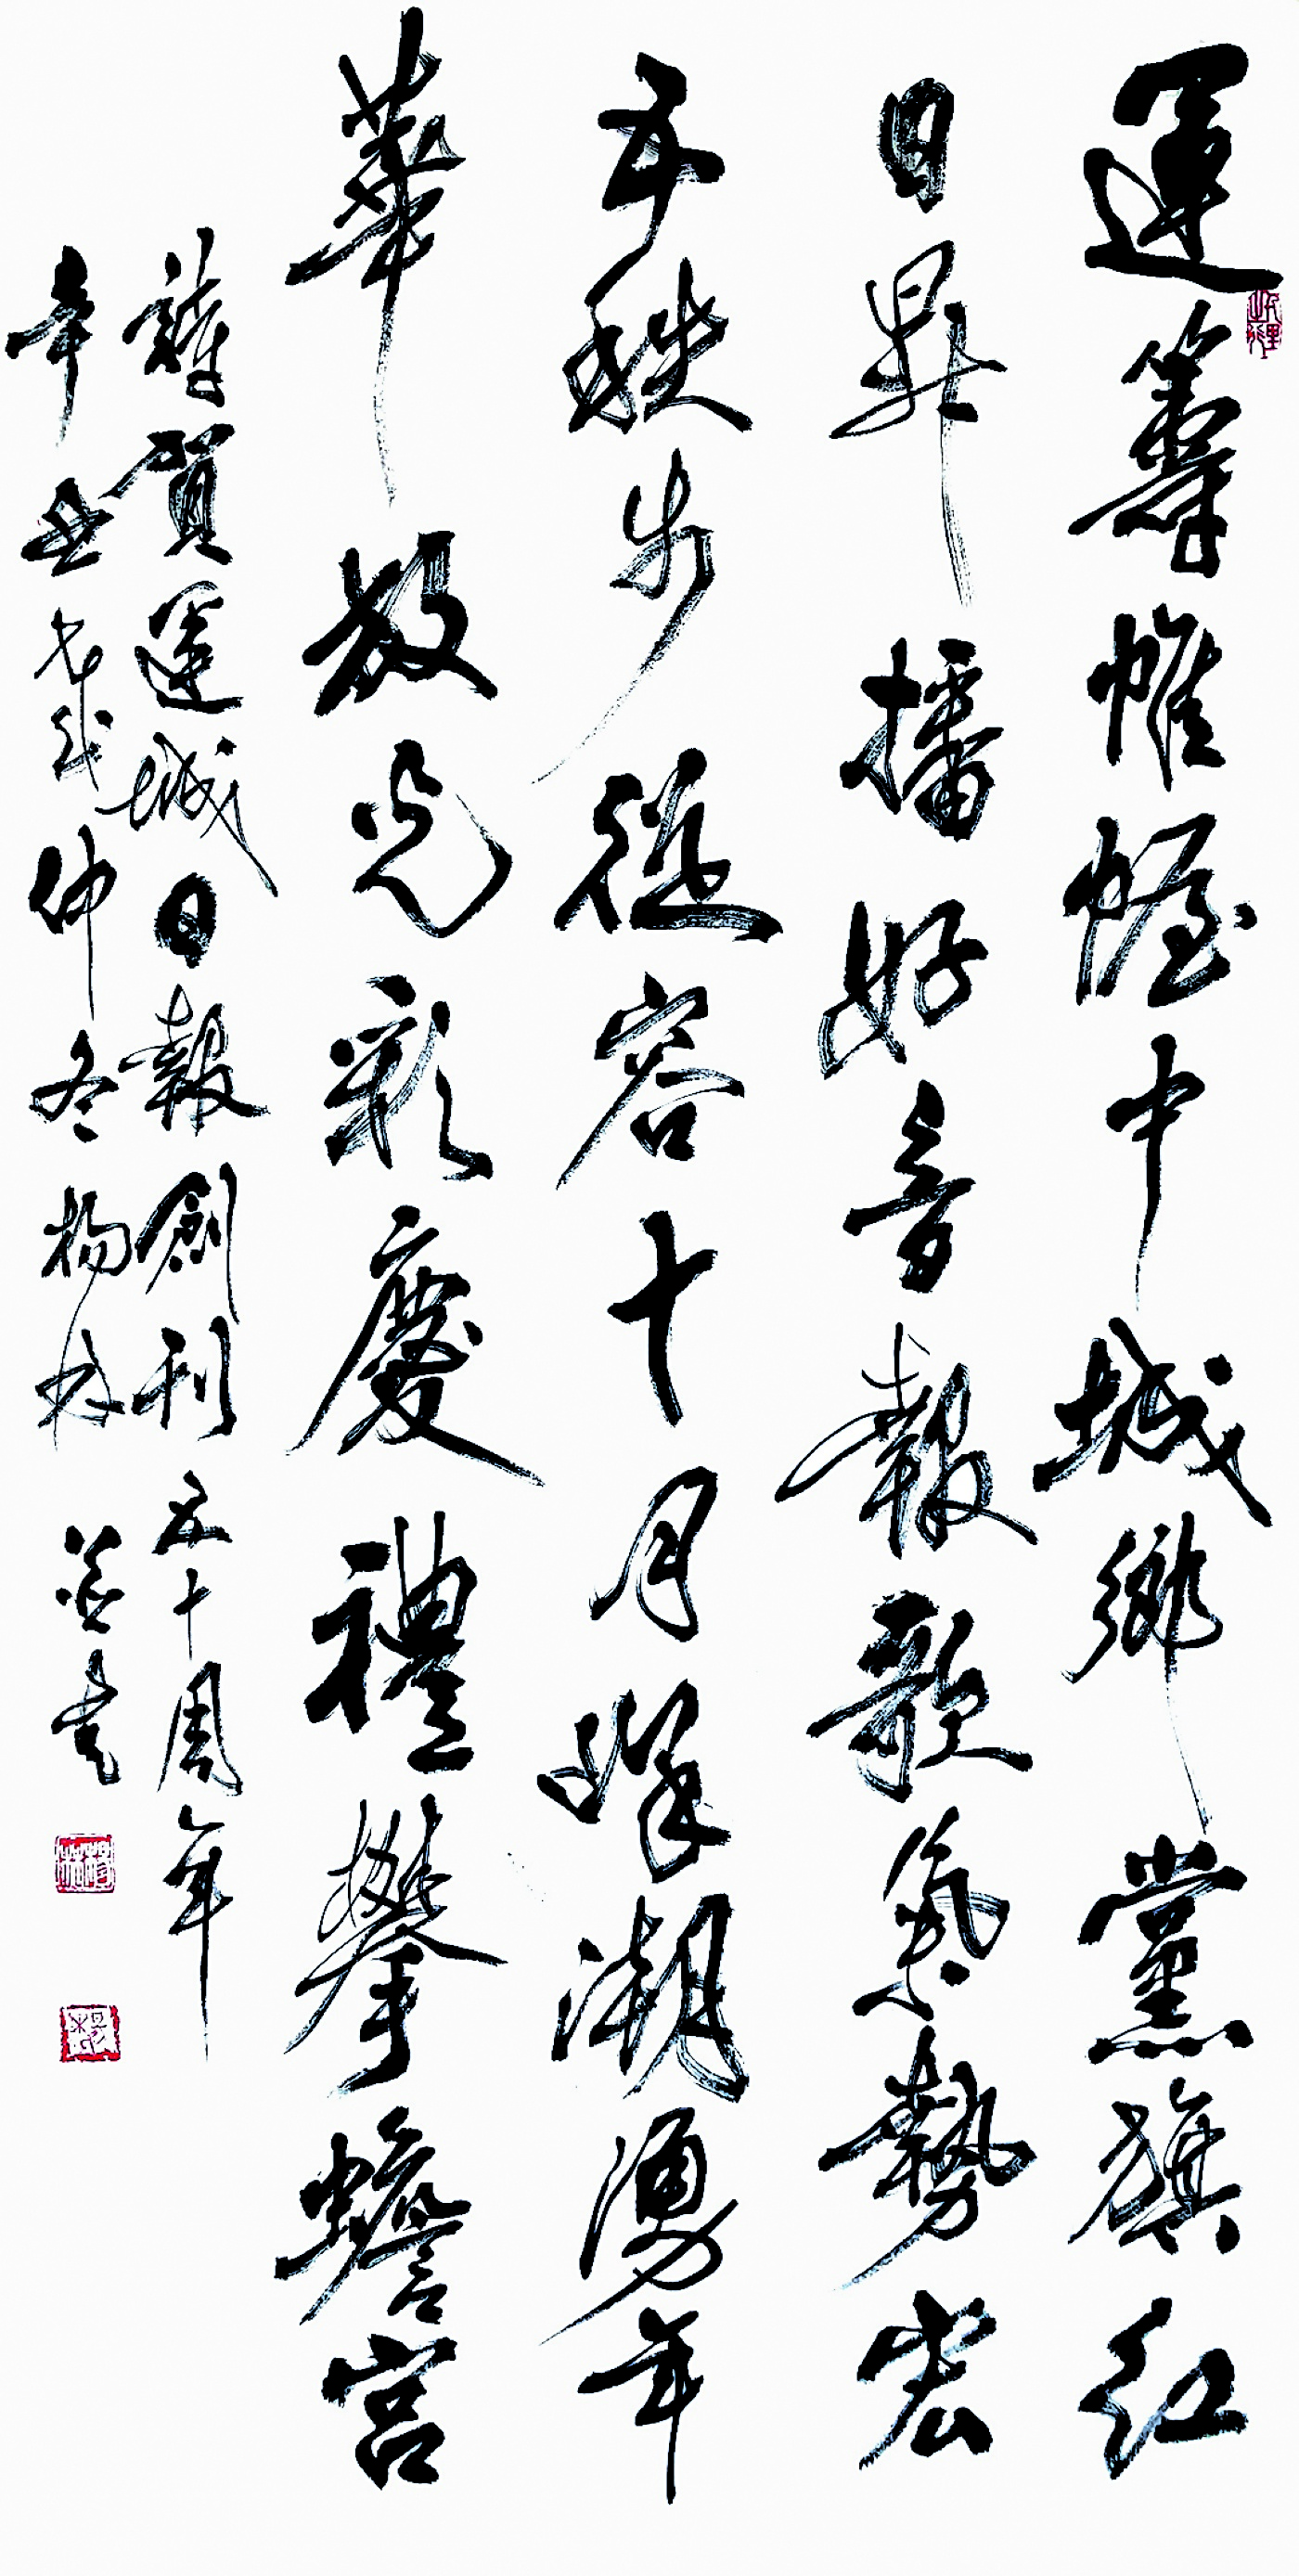 運籌帷幄中城鄉黨旗紅
日昇播好音報歌氣勢宏
五秩步從容十月峰潮湧年
華放光彩慶禮攀蟾宮
謹賀運城日報創刊五十周年
辛丑歲仲冬楊林並書